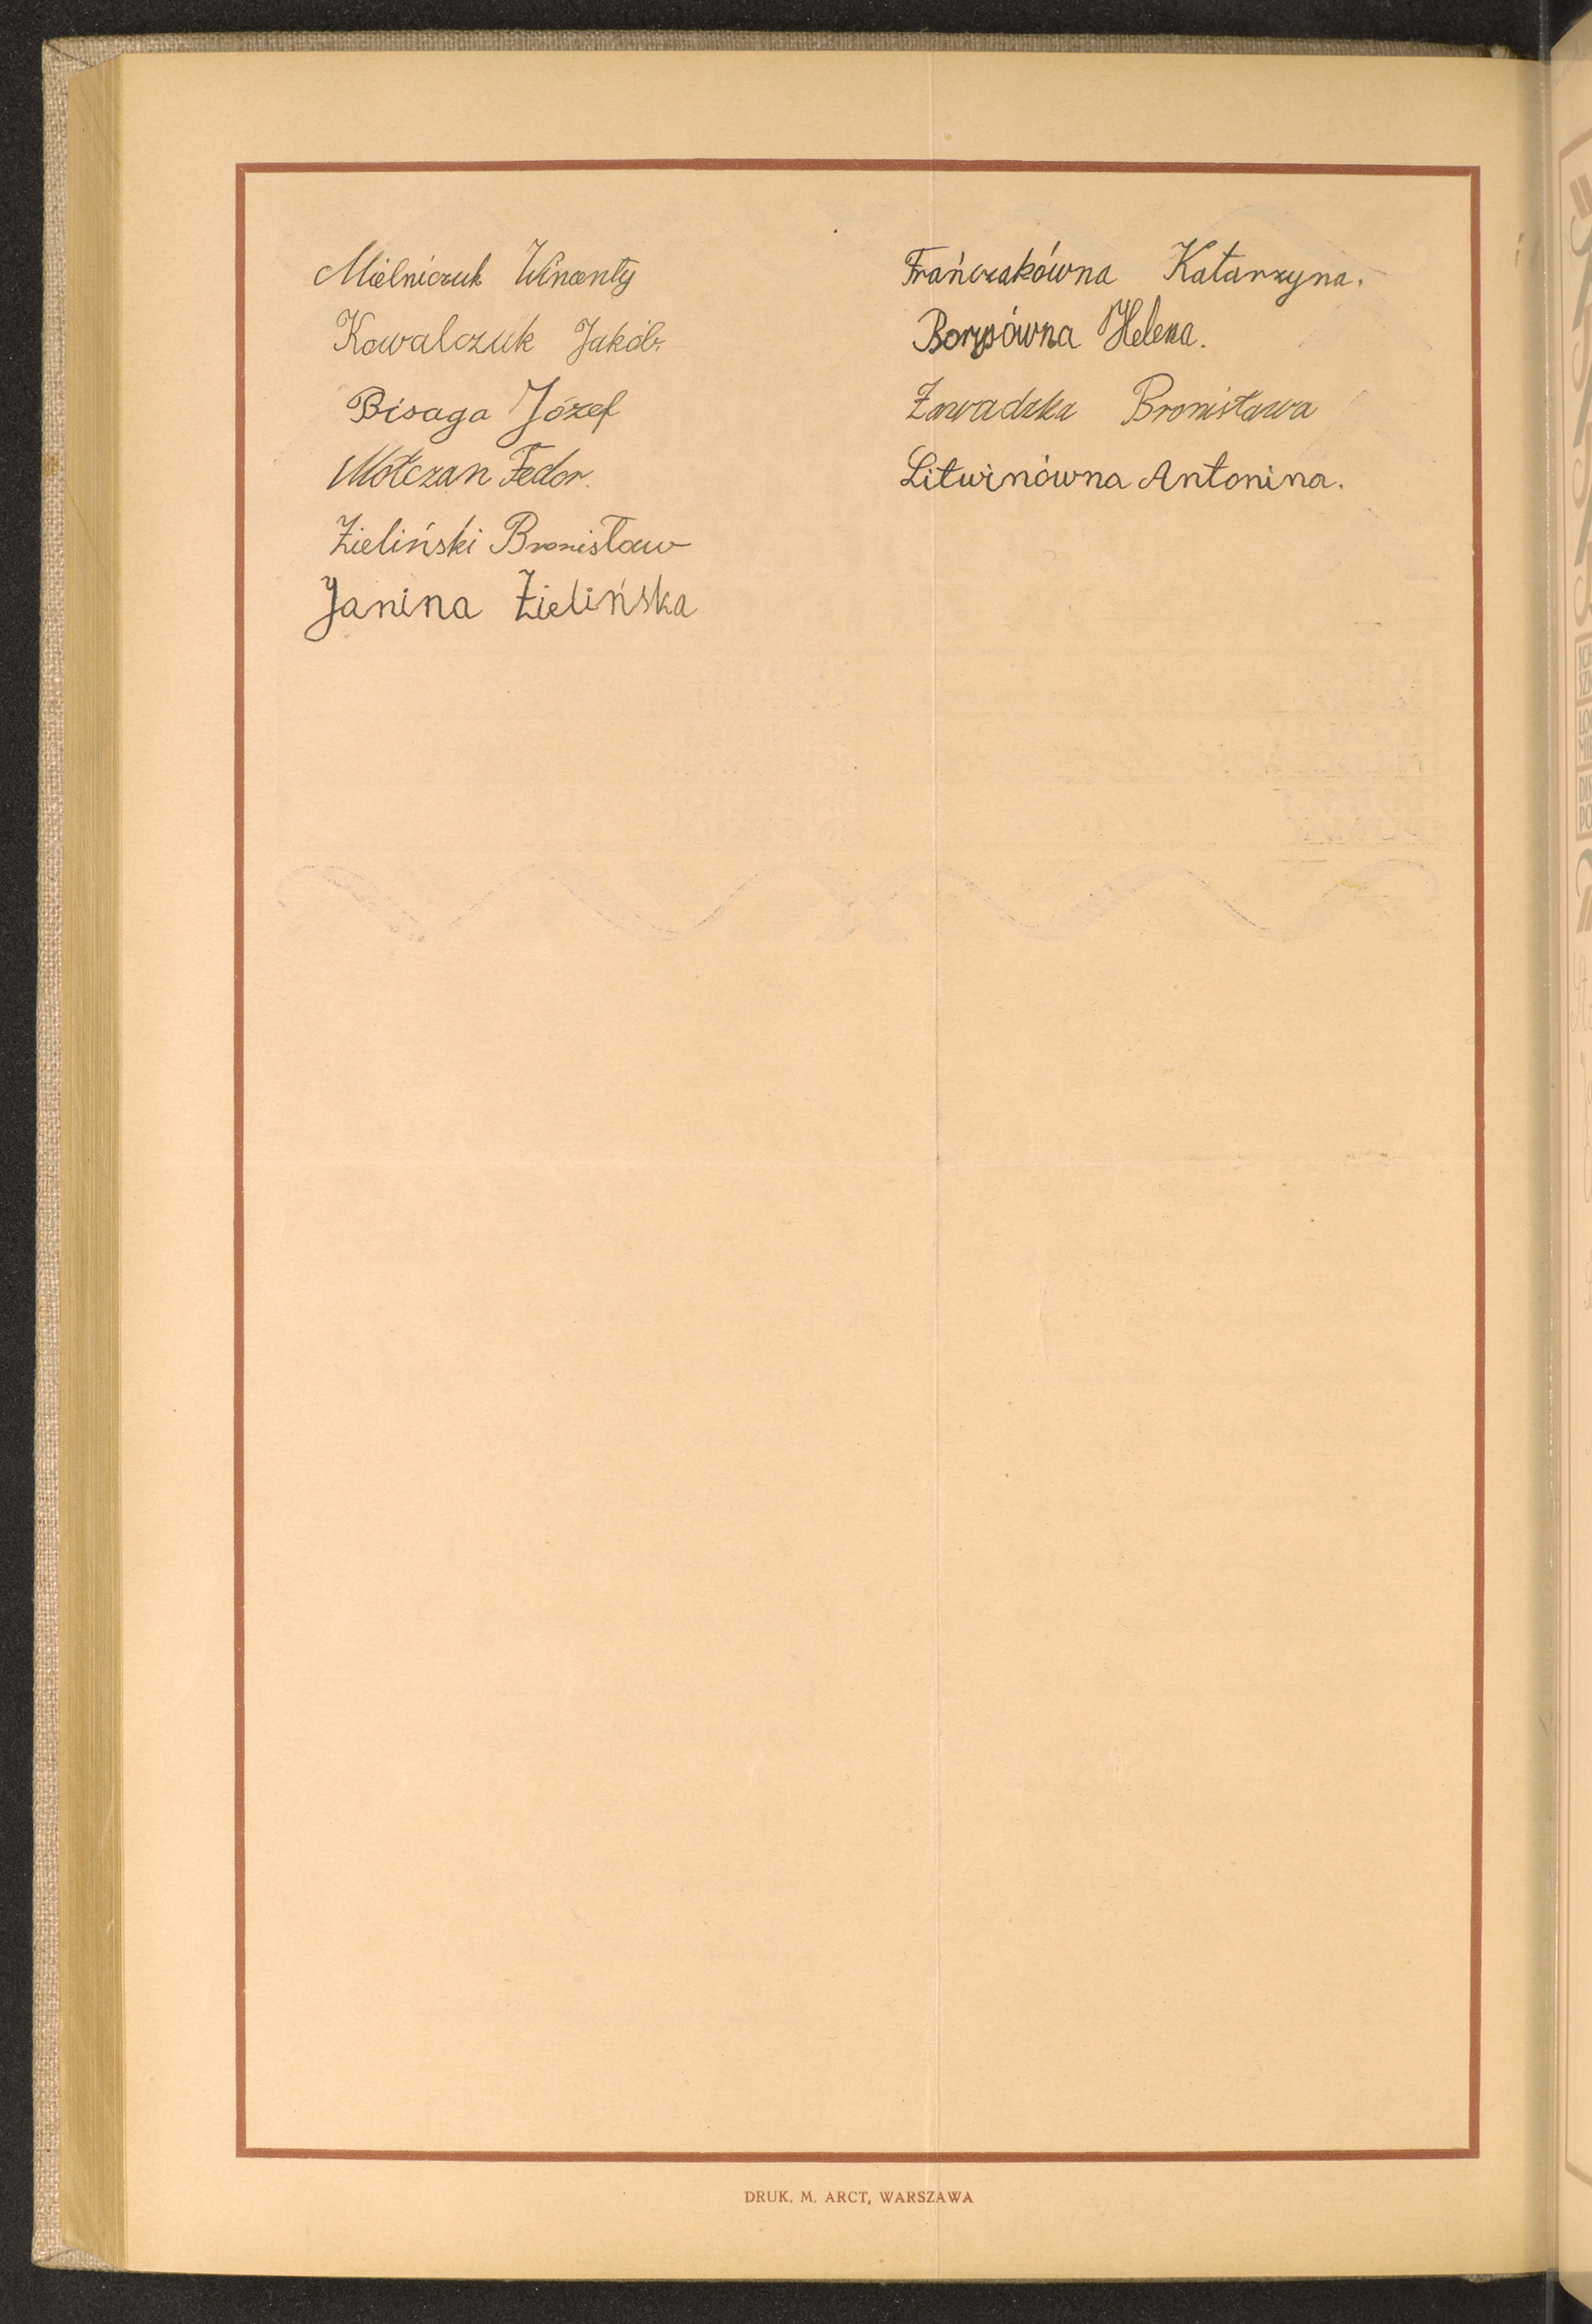 Mielniczuk Wincenty
Kowalczuk Jakób.
Bisaga Józef
Mołczan Fedor.
Zieliński Bronisław
Janina Zielińska
Frańczakówna Katarzyna.
Borysówna Helena.
Zawadzka Bronisława
Litwinówna Antonina.
DRUK. M. ARCT, WARSZAWA